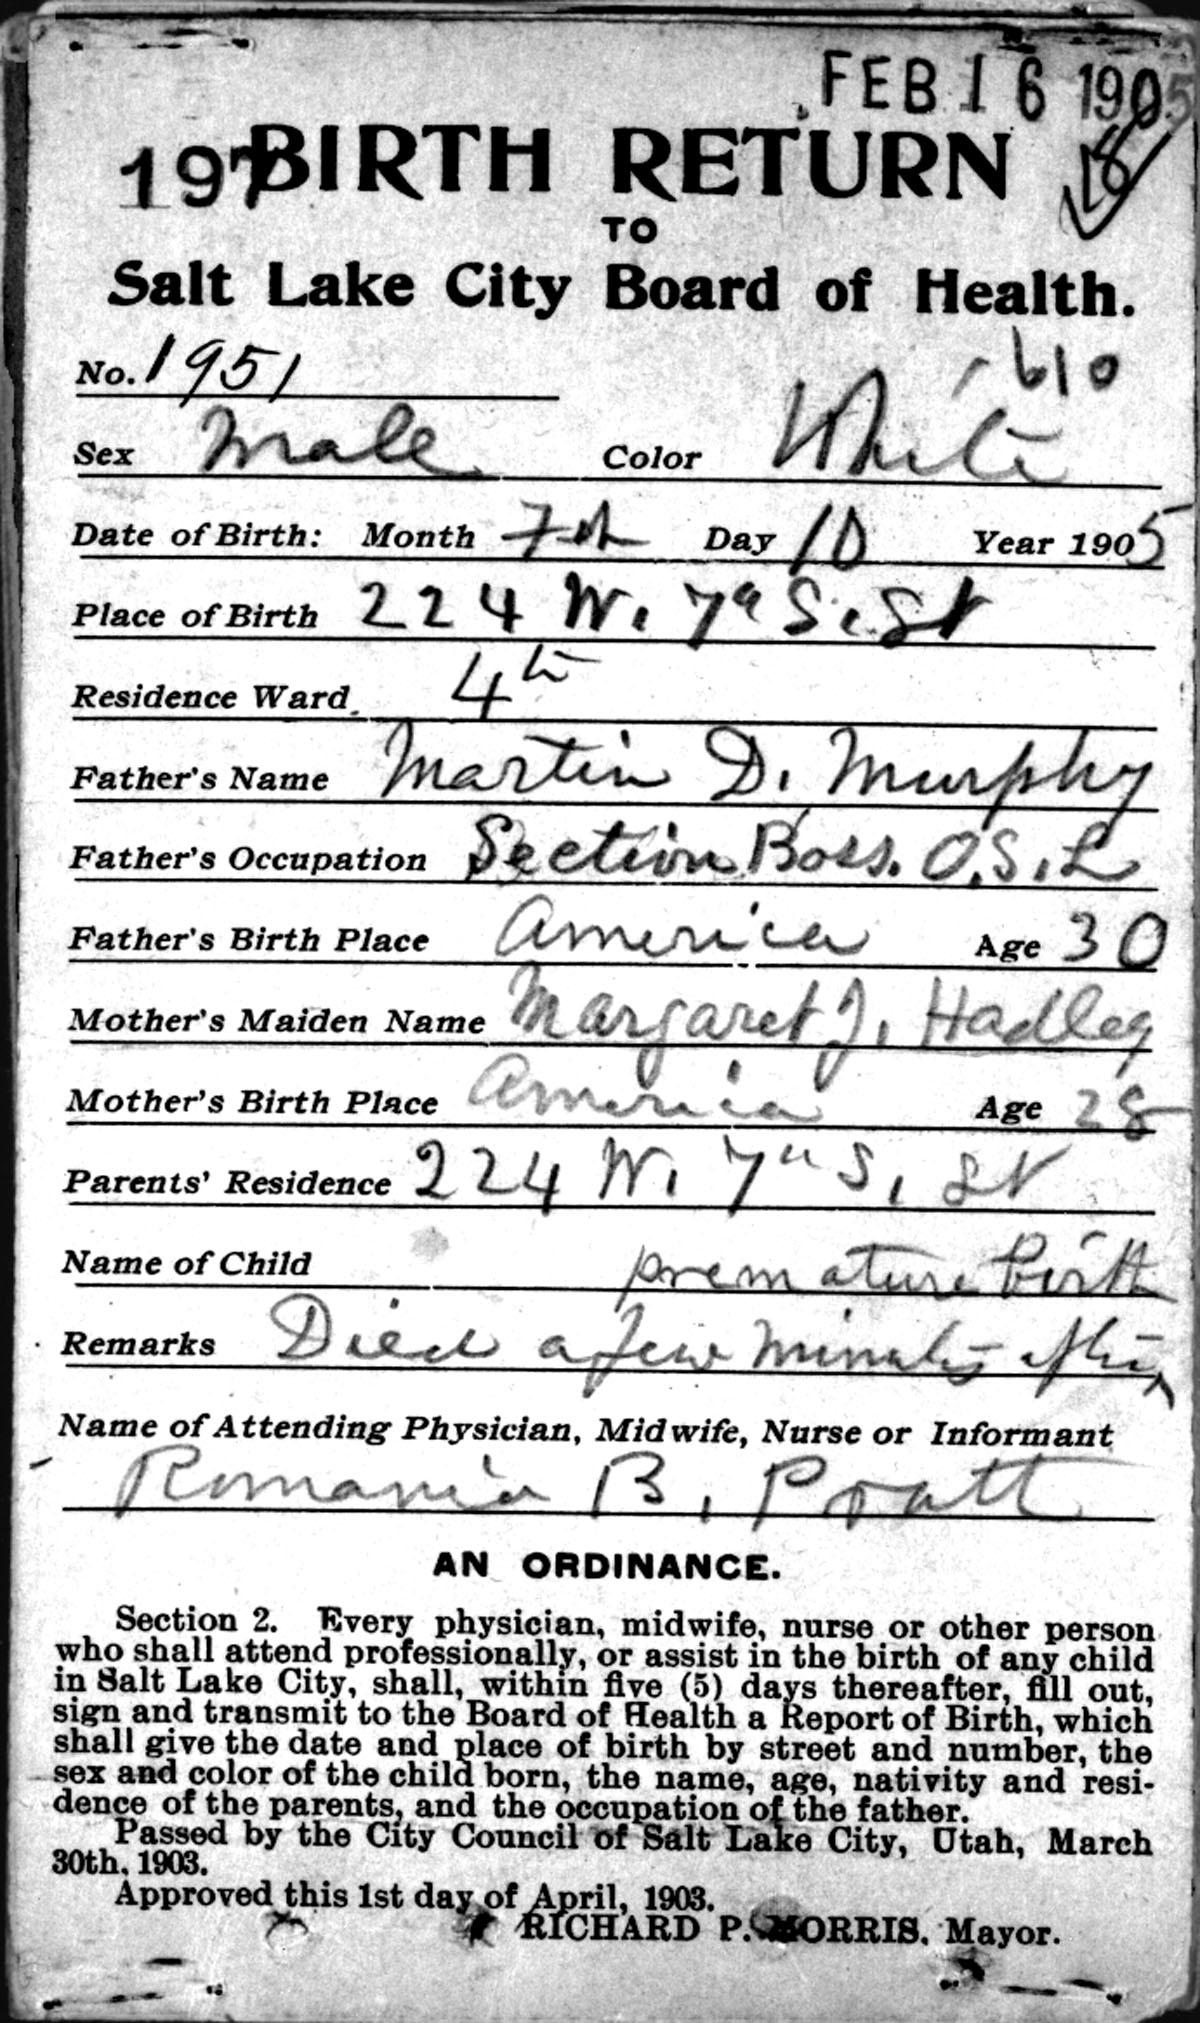 FEB 16 1905
197 BIRTH RETURN
TO
Salt Lake City Board of Health.
No. 1951
610
Sex Male Color White
Date of Birth: Month Feb Day 10 Year 1905
Place of Birth 224 W. 7th S. St
Residence Ward 4th
Father's Name Martin D. Murphy
Father's Occupation Section Boss. O.S.L
Father's Birth Place America Age 30
Mother's Maiden Name Margaret J. Hadley
Mother's Birth Place America Age 28
Parents' Residence 224 W. 7th S. St
Name of Child premature birth
Remarks Died a few minutes after
Name of Attending Physician, Midwife, Nurse or Informant
Romania B. Pratt
AN ORDINANCE.
Section 2. Every physician, midwife, nurse or other person
who shall attend professionally, or assist in the birth of any child
in Salt Lake City, shall, within five (5) days thereafter, fill out,
sign and transmit to the Board of Health a Report of Birth, which
shall give the date and place of birth by street and number, the
sex and color of the child born, the name, age, nativity and resi-
dence of the parents, and the occupation of the father.
Passed by the City Council of Salt Lake City, Utah, March
30th, 1903.
Approved this 1st day of April, 1903.
RICHARD P. MORRIS, Mayor.